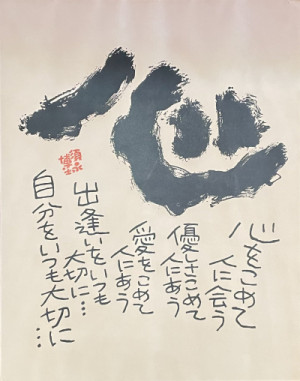 心
須永
博士
心をこめて
人に会う
優しさこめて
人にあう
愛をこめて
人にあう
出逢いをいつも
大切に…
自分をいつも大切に…